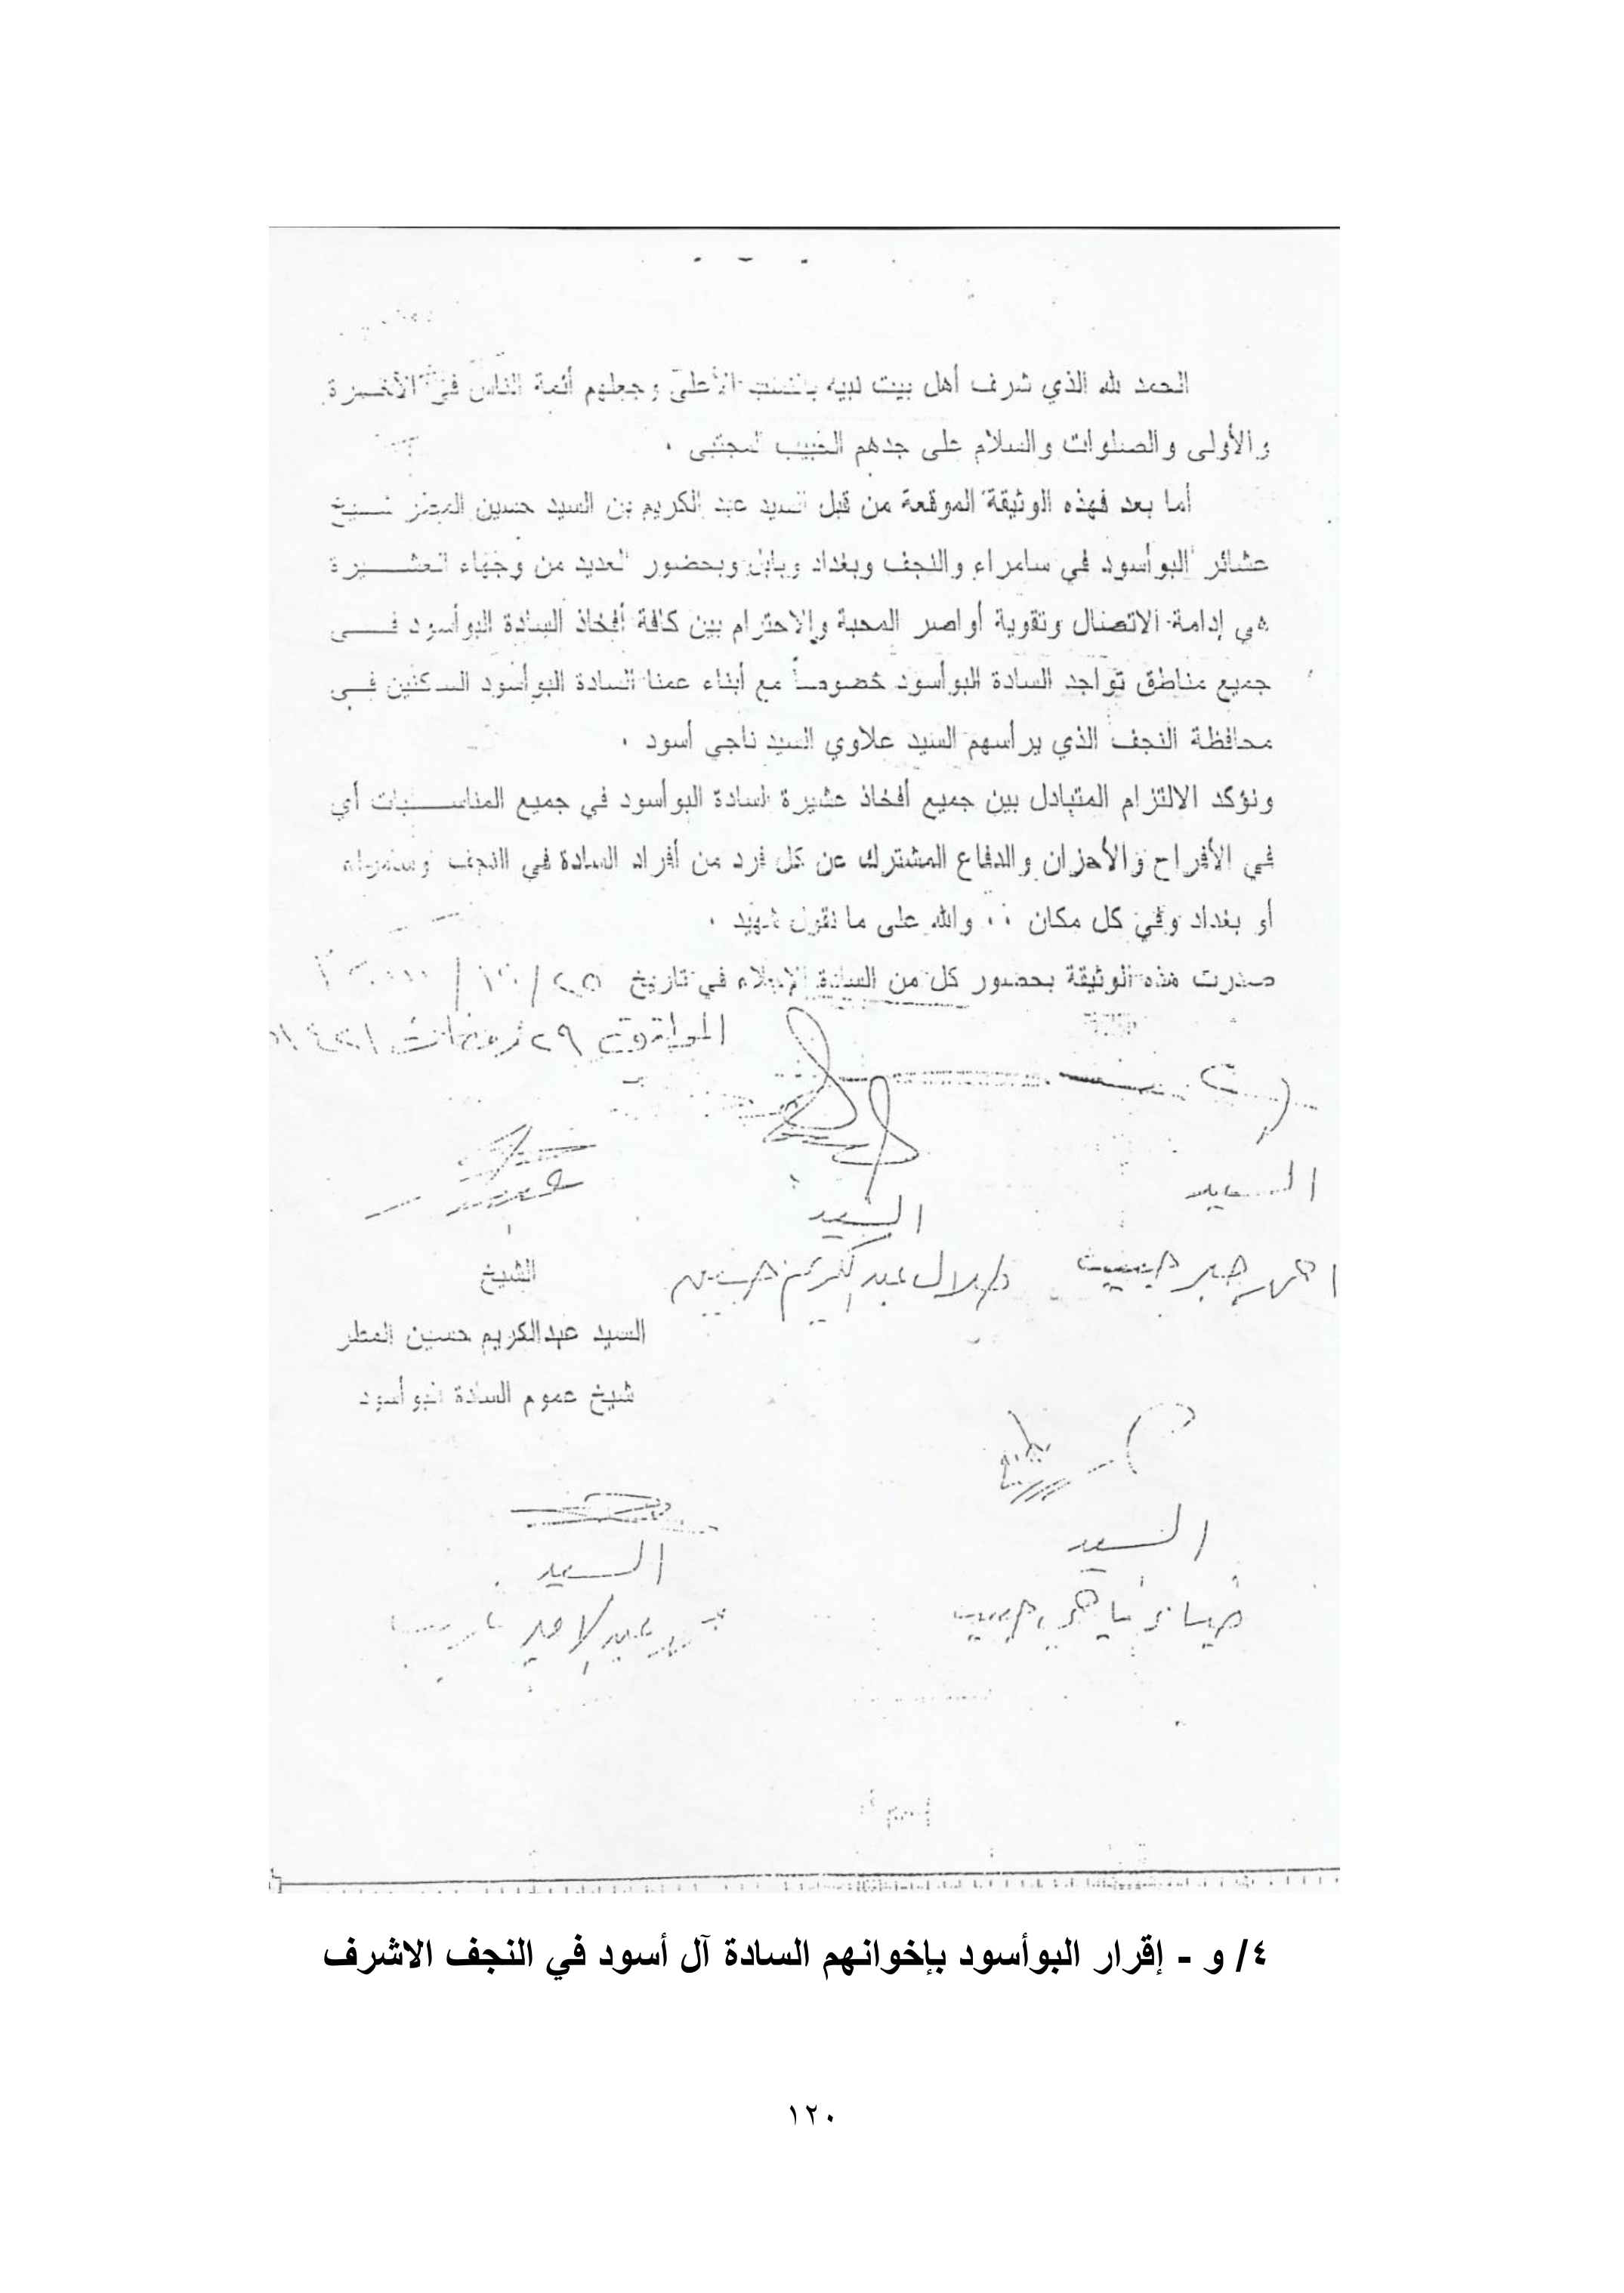 الحمد لله الذي شرف أهل بيت نبيه بالنسب الأعلى وجعلهم أئمة الناس في الأخرة
والأولى والصلوات والسلام على جدهم الحبيب المجتبى .
أما بعد فهذه الوثيقة الموقعة من قبل السيد عبد الكريم بن السيد حسين المطر شيخ
عشائر البوأسود في سامراء والنجف وبغداد وبابل وبحضور العديد من وجهاء العشيرة
هي إدامة الاتصال وتقوية أواصر المحبة والاحترام بين كافة أفخاذ السادة البوأسود في
جميع مناطق تواجد السادة البوأسود خصوصاً مع أبناء عمنا السادة البوأسود الساكنين في
محافظة النجف الذي يرأسهم السيد علاوي السيد ناجي أسود .
ونؤكد الالتزام المتبادل بين جميع أفخاذ عشيرة السادة البوأسود في جميع المناسبات أي
في الأفراح والأحزان والدفاع المشترك عن كل فرد من أفراد السادة في النجف وسامراء
أو بغداد وفي كل مكان .. والله على ما نقول شهيد .
صدرت هذه الوثيقة بحضور كل من السادة الإجلاء في تاريخ ٢٥/١٢/٢٠٠٠
الموافق ٢٩ رمضان ١٤٢١
السيد
السيد
حبيب
طلال عبد الكريم حسين
الشيخ
السيد عبدالكريم حسين المطر
شيخ عموم السادة البوأسود
السيد
السيد
حبيب
٤/ و - إقرار البوأسود بإخوانهم السادة آل أسود في النجف الاشرف
١٢٠